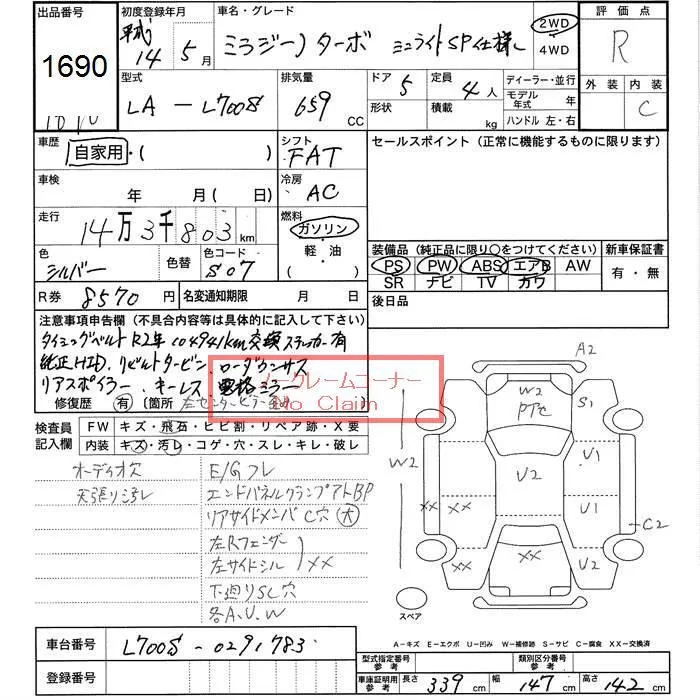 出品番号 初度登録年月 車名・グレード 評価点
1690 平成 14 5 月 ミラジーノ ターボ ミニライトSP仕様 2WD 4WD R
型式 排気量 ドア 5 定員 4 人 ディーラー・並行 外装 内装
LA － L700S 659 CC 形状 積載 kg モデル年式 年 C
ハンドル 左・右
車歴 自家用・( ) シフト FAT セールスポイント (正常に機能するものに限ります)
車検 年 月(日) 冷房 AC
走行 14万3千803 km 燃料 ガソリン
軽・油
( )
色 シルバー 色替 色コード S07 装備品 (純正品に限り○をつけてください) 新車保証書
PS PW ABS エアB AW 有・無
SR ナビ TV カワ
R券 8570 円 名変通知期限 月 日 後日品
注意事項申告欄 (不具合内容等は具体的に記入して下さい)
タイミングベルト R2年 94941km交換ステッカー有
純正HID、リビルトタービン、ローダウンサス
リアスポイラー、キーレス、電格ミラー
ノークレームコーナー
No Claim
修復歴 有 [箇所 左センターピラー
検査員記入欄 FW キズ・飛石・ヒビ割・リペア跡・X要
内装 キズ・汚レ・コゲ・穴・スレ・キレ・破レ
オーディオ欠 E/Gフレ
天張り汚レ エンドパネルクランプアトBP
リアサイドメンバ C穴 大
左Rフェンダー
左サイドシル XX
下廻りSC穴
各A.U.W
A2
W2
PTセ
S1
W2 U2 U1
XX XX U1
C2
XX XX U2
スペア
A－キズ E－エクボ U－凹み W－補修跡 S－サビ C－腐食 XX－交換済
車台番号 L700S － 0291783
登録番号 型式指定番号 参考 類別区分番号 参考
車庫証明用 参考 長さ 339 cm 幅 147 cm 高さ 142 cm